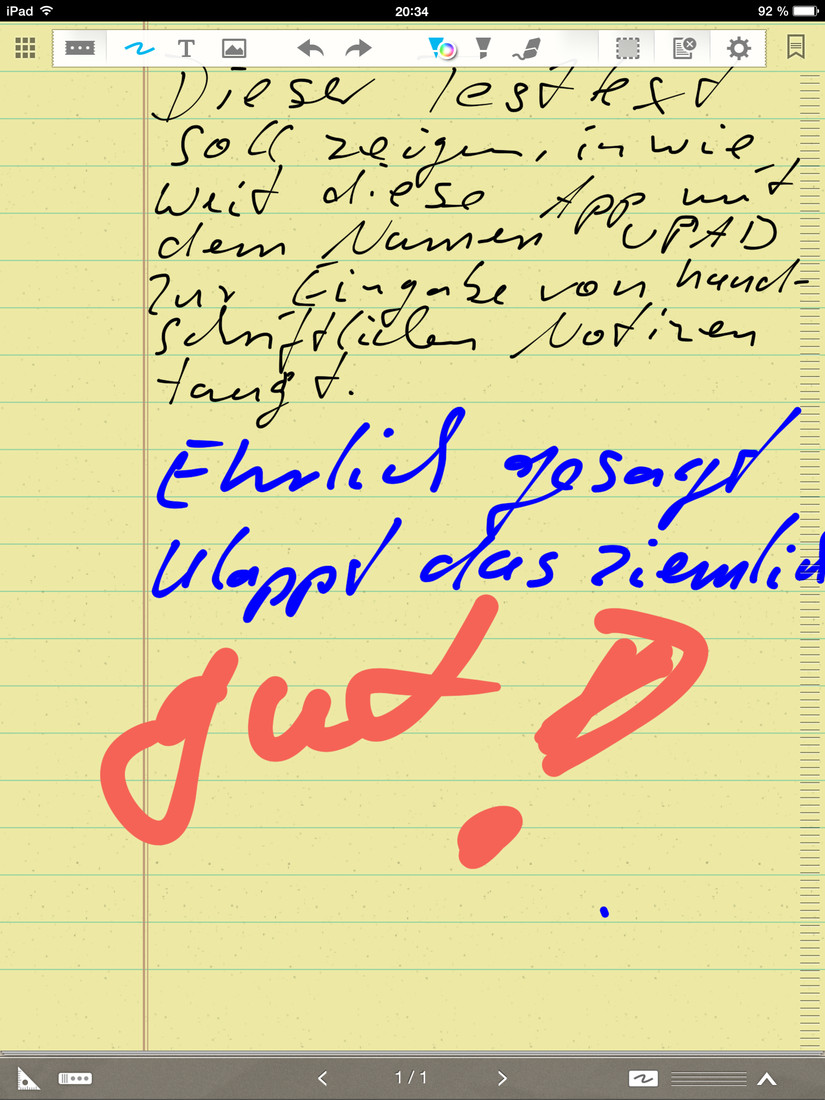 iPad 20:34 92 %
T
Dieser Testtext
soll zeigen, in wie
weit diese App mit
dem Namen UPAD
zur Eingabe von hand-
schriftlichen Notizen
taugt.
Ehrlich gesagt
klappt das ziemlich
gut !
1 / 1